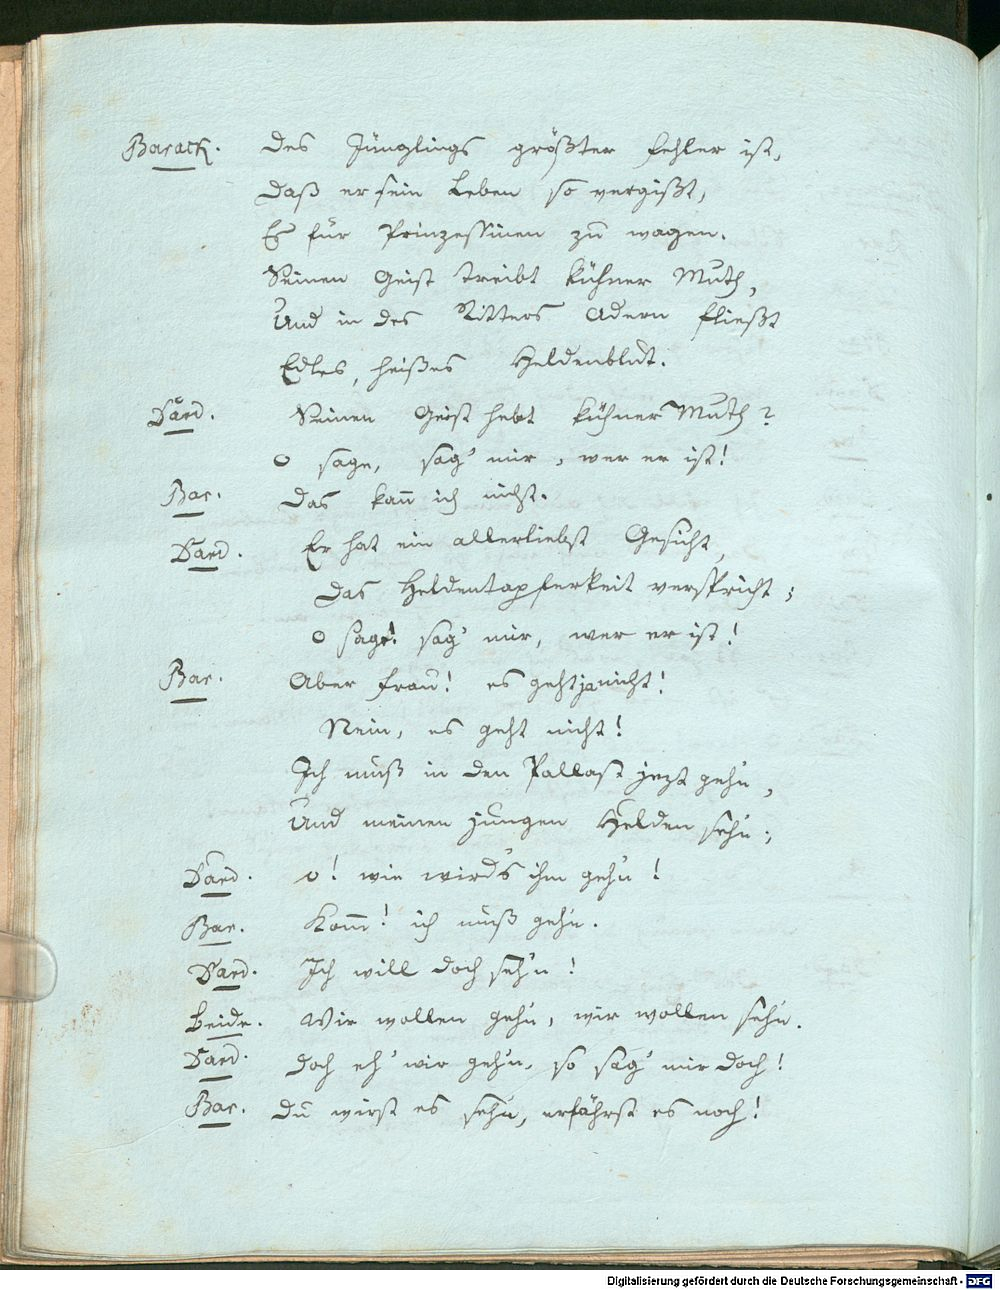 Barack. Des Jünglings größter Fehler ist,
Daß er sein Leben so vergißt,
Es für Prinzessinen zu wagen.
Seinen Geist treibt kühner Muth,
Und in des Ritters Adern fließt
Edles, heißes Heldenblut.
Dard. Seinen Geist hebt kühner Muth?
O sage, sag' mir, wer er ist!
Bar. Das kan̄ ich nicht.
Dard. Er hat ein allerliebst Gesicht,
Das Heldentapferkeit verspricht;
O sage! sag' mir, wer er ist!
Bar. Aber Frau! es geht ja nicht!
Nein, es geht nicht!
Ich muß in den Pallast jezt gehn,
Und meinen jungen Helden sehn;
Dard. O! wie wird's ihm gehn!
Bar. Kom̄! ich muß gehn.
Dard. Ich will doch seh'n!
Beide. Wir wollen gehn, wir wollen sehn.
Dard. Doch eh' wir geh'n, so sag' mir doch!
Bar. Du wirst es sehn, erfährst es noch!
Digitalisierung gefördert durch die Deutsche Forschungsgemeinschaft - DFG